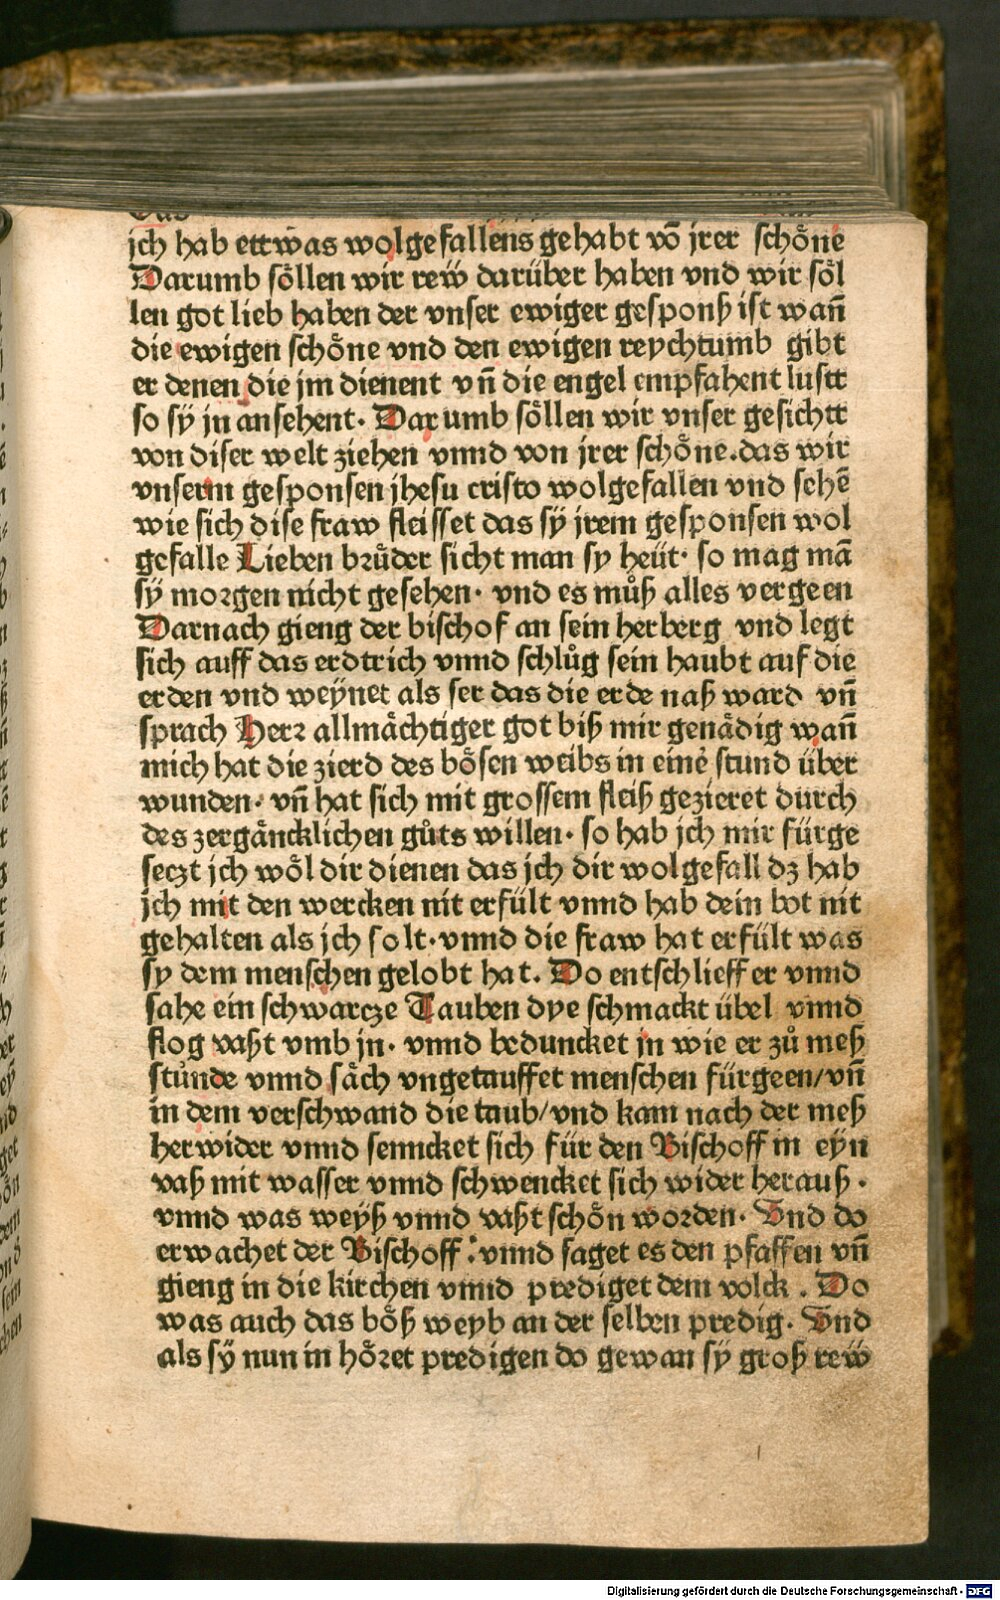 jch hab ettwas wolgefallens gehabt võ jrer schöne
Darumb söllen wir reẅ darüber haben vnd wir söl
len got lieb haben der vnser ewiger gesponß ist wañ
die ewigen schöne vnd den ewigen reychtumb gibt
er denen die jm dienent vñ die engel empfahent lustt
so sÿ jn ansehent. Darumb söllen wir vnser gesichtt
von diser welt ziehen vnnd von jrer schöne.das wir
vnserm gesponsen jhesu cristo wolgefallen vnd sehẽ
wie sich dise fraw fleisset das sÿ jrem gesponsen wol
gefalle Lieben brůder sicht man sy heüt· so mag mã
sÿ morgen nicht gesehen· vnd es můß alles vergeen
Darnach gieng der bischof an sein herberg vnd legt
sich auff das erdtrich vnnd schlůg sein haubt auf die
erden vnd weÿnet als ser das die erde naß ward vñ
sprach Herꝛ allmächtiger got biß mir genädig wañ
mich hat die zierd des bösen weibs in einer stund über
wunden· vñ hat sich mit grossem fleiß gezieret durch
des zergäncklichen gůts willen· so hab jch mir fürge
seczt jch wöl dir dienen das jch dir wolgefall dz hab
jch mit den wercken nit erfült vnnd hab dein bot nit
gehalten als jch solt·vnnd die fraw hat erfült was
sy dem menschen gelobt hat. Do entschlieff er vnnd
sahe ein schwarcze Tauben dye schmackt übel vnnd
flog vaßt vmb jn· vnnd beduncket jn wie er zů meß
stůnde vnnd säch vngetauffet menschen fürgeen/vñ
in dem verschwand die taub/vnd kam nach der meß
herwider vnnd senncket sich für den Bischoff in eÿn
vaß mit wasser vnnd schwencket sich wider herauß·
vnnd was weÿß vnnd vaßt schön worden· Vnd do
erwachet der Bischoff:vnnd saget es den pfaffen vñ
gieng in die kirchen vnnd prediget dem volck. Do
was auch das böß weyb an der selben predig. Vnd
als sÿ nun in höꝛet predigen do gewan sÿ groß reẅ
Digitalisierung gefördert durch die Deutsche Forschungsgemeinschaft - DFG